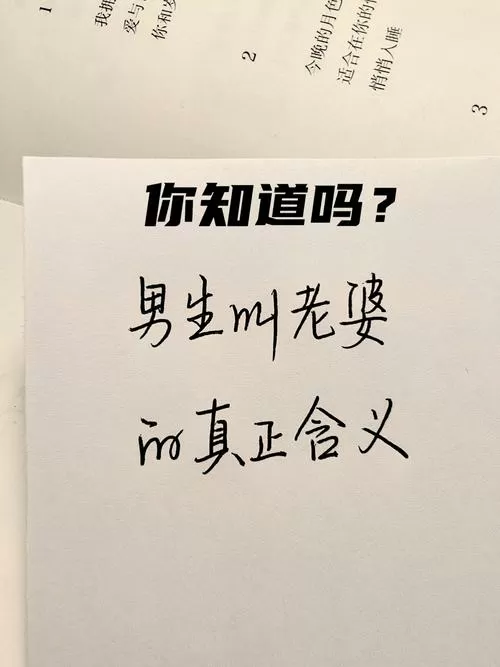 我拥
爱与
你和岁
1
2
今晚的月色
适合在你的
悄悄入睡
3
你知道吗？
男生叫老婆
的真正含义